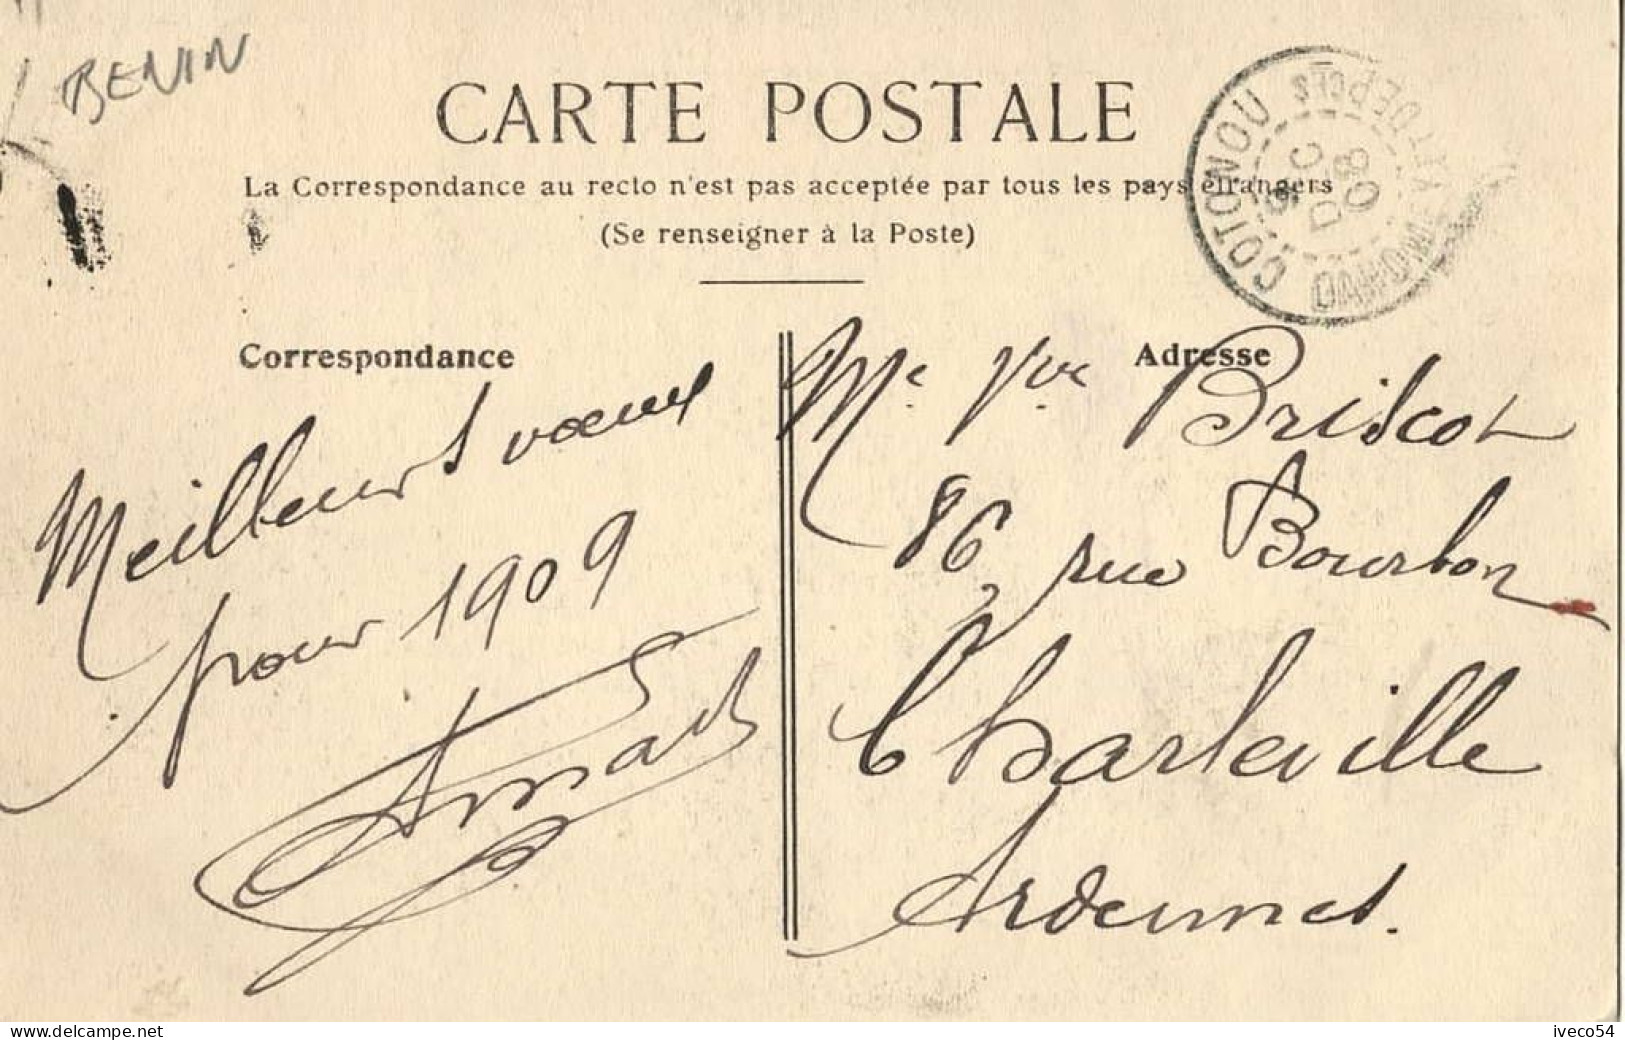 BENIN
CARTE POSTALE
La Correspondance au recto n'est pas acceptée par tous les pays étrangers
(Se renseigner à la Poste)
COTONOU
DAHOMEY ET DEPCES
DEC
08
Correspondance
Meilleurs vœux
pour 1909
Adresse
Me Vve Briscot
86, rue Bourbon
Charleville
Ardennes.
www.delcampe.net
iveco54